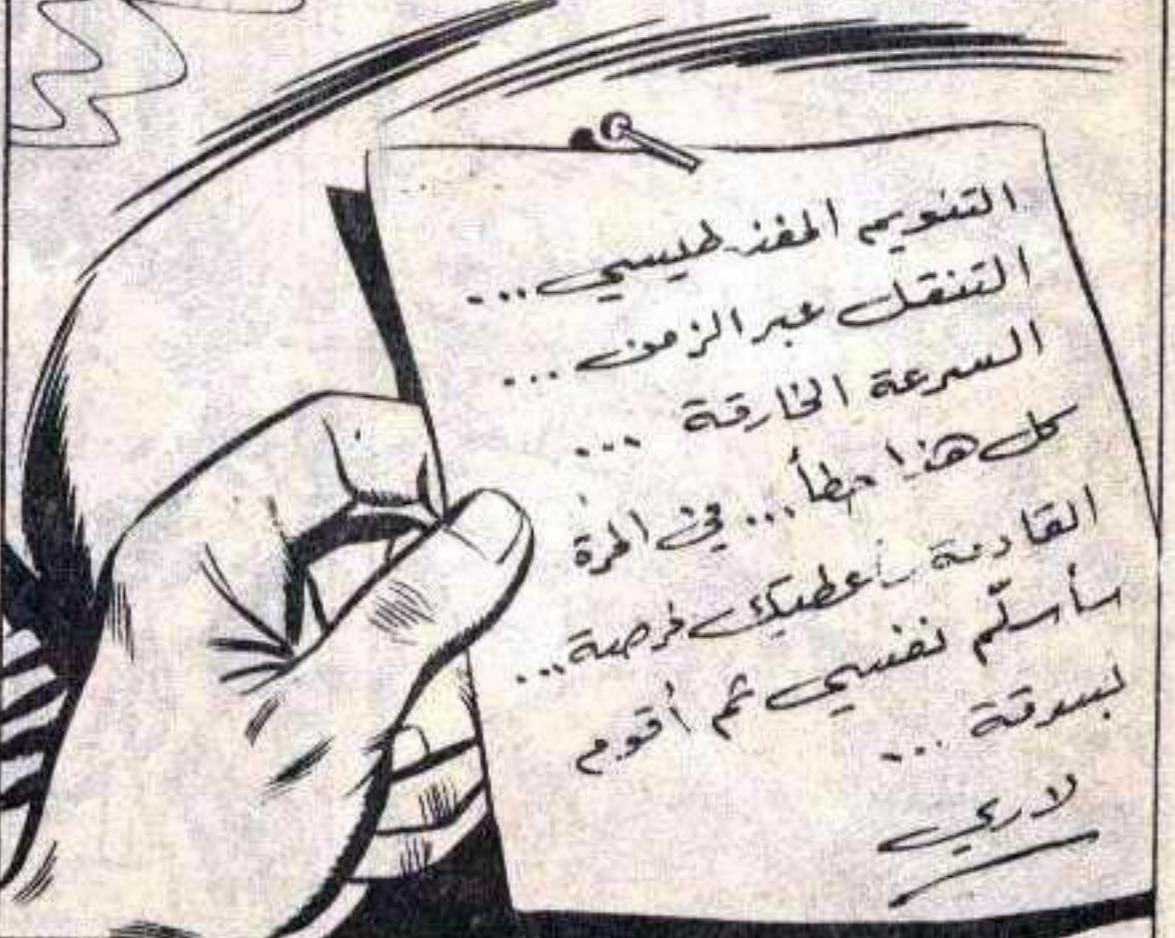 التنويم المغنطيسي...
التنقل عبر الزمن...
السرعة الخارقة ...
كل هذا خطأ... في المرة
القادمة سأعطيك فرصة...
سأسلّم نفسي ثم أقوم
بسرقة ...
لاري